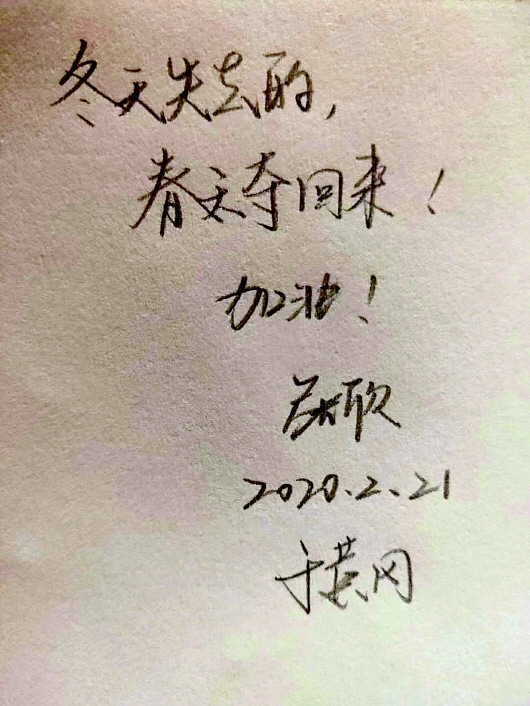 冬天失去的，
春天夺回来！
加油！
欣
2020.2.21
于黄冈